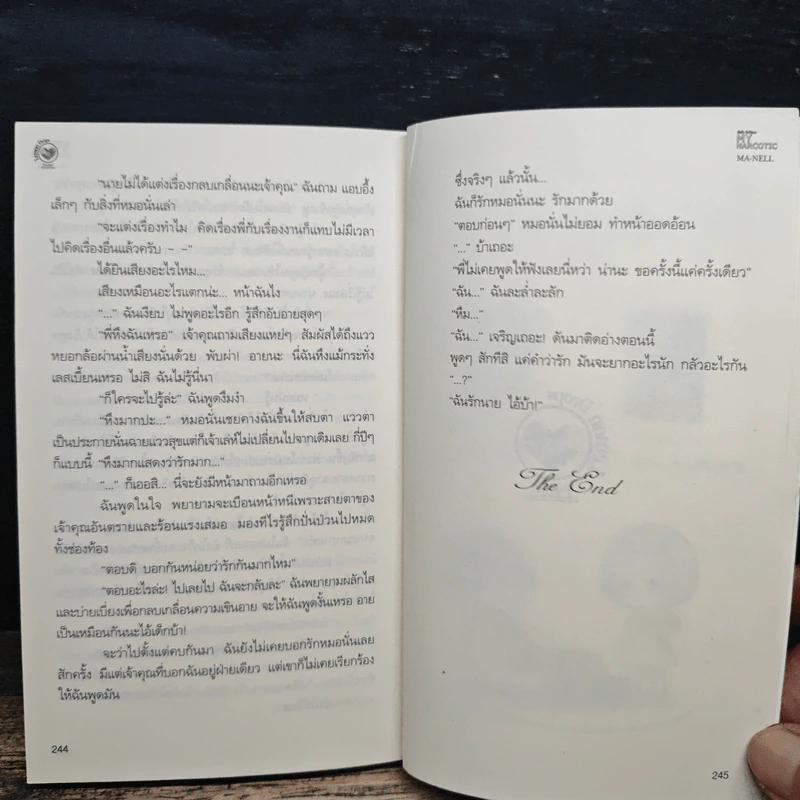 "นายไม่ได้แต่งเรื่องกลบเกลื่อนนะเจ้าคุณ" ฉันถาม แอบอึ้ง
เล็กๆ กับสิ่งที่หมอนั่นเล่า
"จะแต่งเรื่องทำไม คิดเรื่องพี่กับเรื่องงานก็แทบไม่มีเวลา
ไปคิดเรื่องอื่นแล้วครับ - -"
ได้ยินเสียงอะไรไหม...
เสียงเหมือนอะไรแตกน่ะ... หน้าฉันไง
"..." ฉันเงียบ ไม่พูดอะไรอีก รู้สึกอับอายสุดๆ
"พี่หึงฉันเหรอ" เจ้าคุณถามเสียงแหย่ๆ สัมผัสได้ถึงแวว
หยอกล้อผ่านน้ำเสียงนั่นด้วย พับผ่า! อายนะ นี่ฉันหึงแม้กระทั่ง
เลสเบี้ยนเหรอ ไม่สิ ฉันไม่รู้นี่นา
"ก็ใครจะไปรู้ล่ะ" ฉันพูดงึมงำ
"หึงมากปะ..." หมอนั่นเชยคางฉันขึ้นให้สบตา แววตา
เป็นประกายนั่นฉายแววสุขแต่ก็เจ้าเล่ห์ไม่เปลี่ยนไปจากเดิมเลย กี่ปีๆ
ก็แบบนี้ "หึงมากแสดงว่ารักมาก..."
"..." ก็เออสิ... นี่จะยังมีหน้ามาถามอีกเหรอ
ฉันพูดในใจ พยายามจะเบือนหน้าหนีเพราะสายตาของ
เจ้าคุณอันตรายและร้อนแรงเสมอ มองทีไรรู้สึกปั่นป่วนไปหมด
ทั้งช่องท้อง
"ตอบดิ บอกกันหน่อยว่ารักกันมากไหม"
"ตอบอะไรล่ะ! ไปเลยไป ฉันจะกลับละ" ฉันพยายามผลักไส
และบ่ายเบี่ยงเพื่อกลบเกลื่อนความเขินอาย จะให้ฉันพูดงั้นเหรอ อาย
เป็นเหมือนกันนะไอ้เด็กบ้า!
จะว่าไปตั้งแต่คบกันมา ฉันยังไม่เคยบอกรักหมอนั่นเลย
สักครั้ง มีแต่เจ้าคุณที่บอกฉันอยู่ฝ่ายเดียว แต่เขาก็ไม่เคยเรียกร้อง
ให้ฉันพูดมัน
244
MY
NARCOTIC
MA-NELL
ซึ่งจริงๆ แล้วนั้น...
ฉันก็รักหมอนั่นนะ รักมากด้วย
"ตอบก่อนๆ" หมอนั่นไม่ยอม ทำหน้าออดอ้อน
"..." บ้าเถอะ
"พี่ไม่เคยพูดให้ฟังเลยนี่หว่า น่านะ ขอครั้งนี้แค่ครั้งเดียว"
"ฉัน..." ฉันละล่ำละลัก
"หืม..."
"ฉัน..." เจริญเถอะ! ดันมาติดอ่างตอนนี้
พูดๆ สักทีสิ แค่คำว่ารัก มันจะยากอะไรนัก กลัวอะไรกัน
"...?"
"ฉันรักนาย ไอ้บ้า!"
The End
245